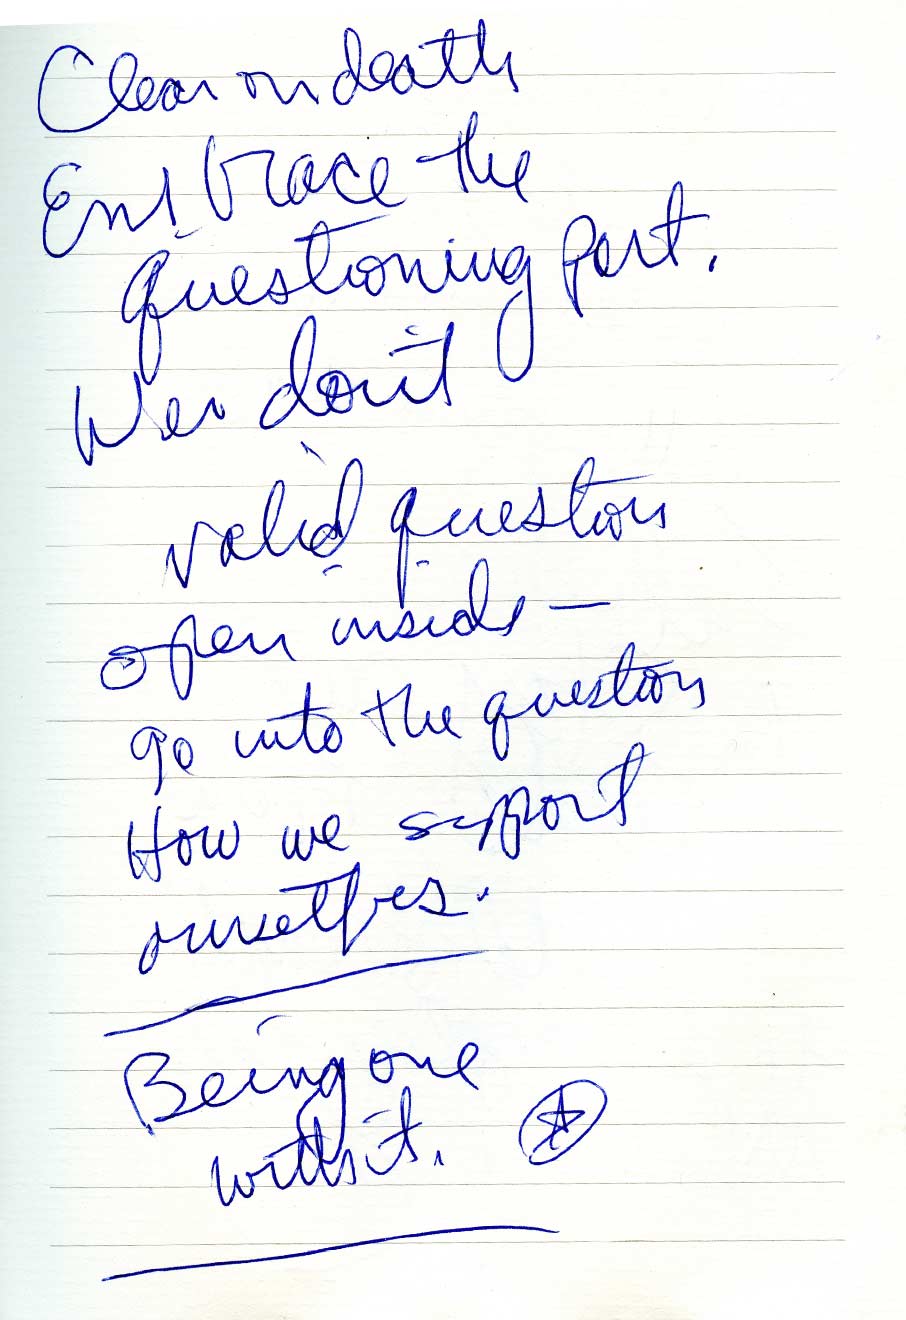 Clear on death
Embrace the
questioning part.
We don't
valid question
open inside —
go into the question
How we support
ourselves.
Being one
with it.